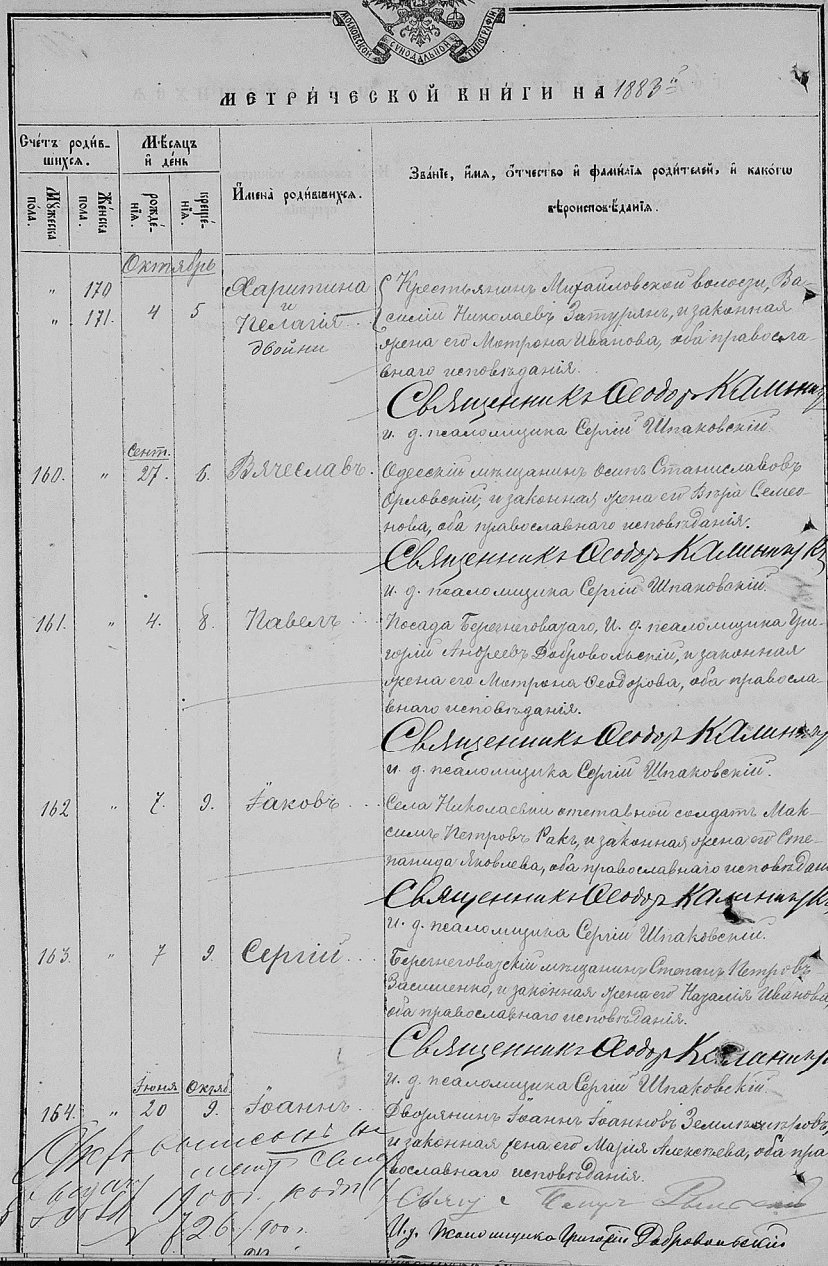 МОСКОВСКОЙ СѴНОДАЛЬНОЙ ТИПОГРАФІИ
МЕТРИ́ЧЕСКОЙ КНИ́ГИ НА 1883
Сче́тъ роди́в-
шихся.
Мѣсяцъ
и҆ де́нь
Мꙋжеска
по́ла.
Же́нска
пола.
рожде́-
нїѧ.
креще́-
нїѧ.
И҆мена̀ роди́вшихся.
Зва́нїе, и҆́мѧ, ѻ҆́тчество и҆ фами́лїѧ роди́телей, и҆ како́гѡ
вѣроисповѣ́данїѧ.
Октябрь
" 170 Харитина Крестьянинъ Михайловской волости, Ва-
и
" 171. 4 5 Пелагія силій Николаевъ Затурянъ, и законная
двойни жена его Матрона Иванова, оба правосла-
внаго исповѣданія.
Священникъ Ѳеодоръ Калини
и. д. псаломщика Сергій Шпаковскій
Сент.
160. " 27. 6. Вячеславъ. Одесскій мѣщанинъ Осипъ Станиславовъ
Орловскій, и законная жена его Вѣра Семео-
нова, оба православнаго исповѣданія.
Священникъ Ѳеодоръ Калини
и. д. псаломщика Сергій Шпаковскій.
161. " 4. 8. Павелъ Посада Березнеговатаго, И. д. псаломщика Гри-
горій Андреевъ Добровольскій, и законная
жена его Матрона Ѳеодорова, оба правосла-
внаго исповѣданія.
Священникъ Ѳеодоръ Калини
и. д. псаломщика Сергій Шпаковскій.
162 " 7. 9. Іаковъ Села Николаевки отставной солдатъ Мак-
симъ Петровъ Ракъ, и законная жена его Сте-
панида Яковлева, оба православнаго исповѣдан
Священникъ Ѳеодоръ Калини
и. д. псаломщика Сергій Шпаковскій.
163. " 7 9. Сергій Березнеговатскій мѣщанинъ Степанъ Петровъ
и законная жена его Наталія Иванова,
оба православнаго исповѣданія.
Священникъ Ѳеодоръ Калини
и. д. псаломщика Сергій Шпаковскій
Іюня Октяб.
164. " 20 9. Іоаннъ Дворянинъ Іоаннъ Іоанновъ
и законная жена его Марія Алексѣева, оба пра
вославнаго исповѣданія.
1900 г.
726
И. д. Псаломщика Григорій Добровольскій